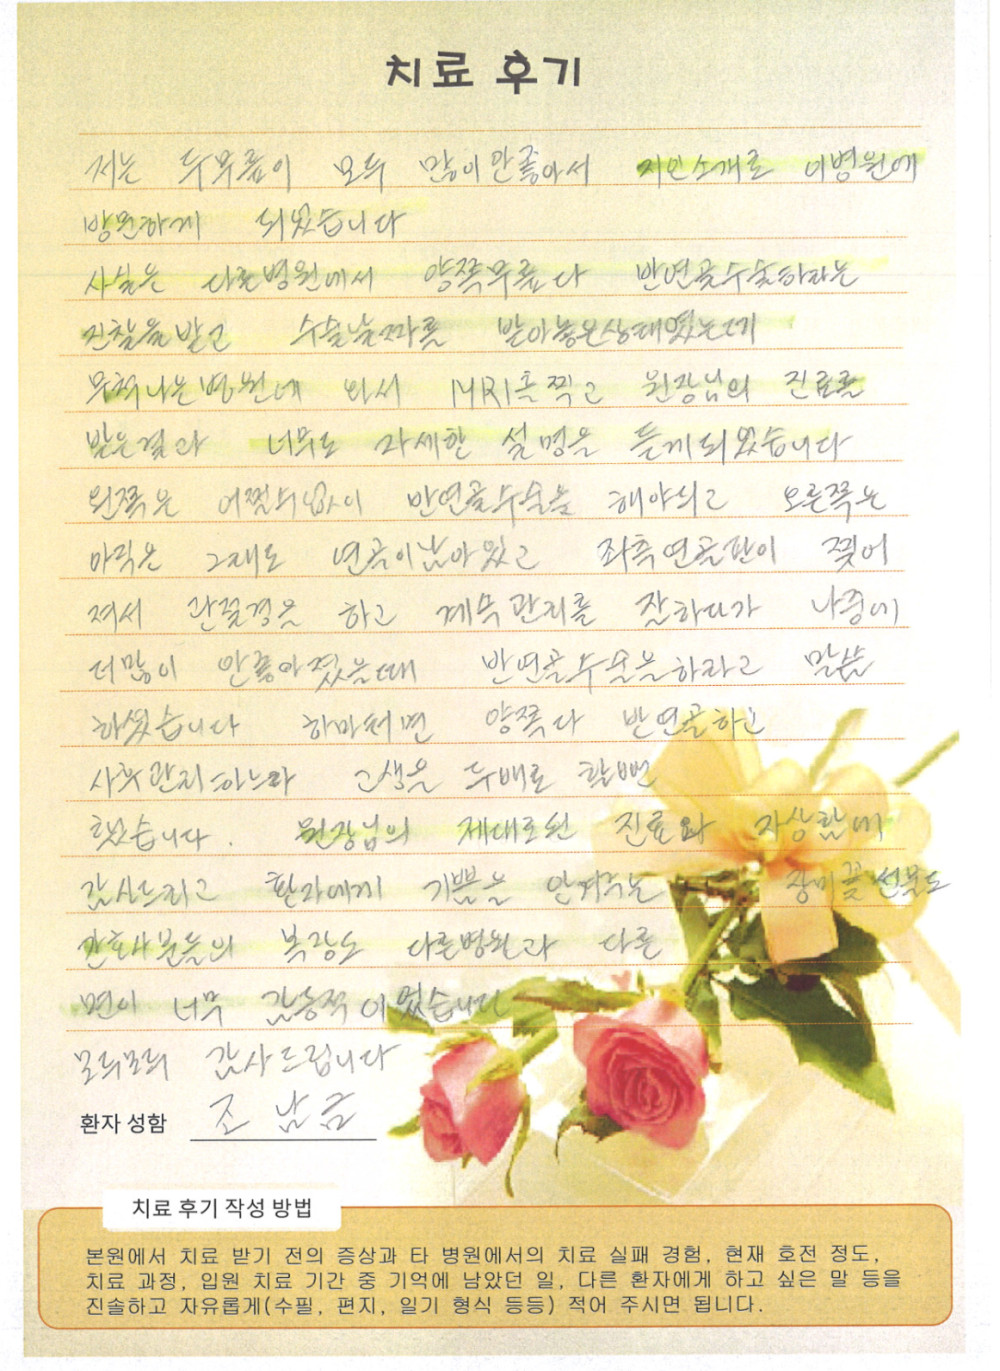 치료 후기
저는 두무릎이 모두 많이안좋아서 지인소개로 이병원에
방문하게 되었습니다
사실은 다른병원에서 양쪽무릎다 반연골수술하라는
진찰을받고 수술날짜를 받아놓은상태였는데
무척나은병원에 와서 MRI촬 찍고 원장님의 진료를
받은결과 너무도 자세한 설명을 듣게되었습니다
왼쪽은 어쩔수없이 반연골수술을 해야되고 오른쪽은
아직은 그래도 연골이남아있고 좌측연골판이 찢어
져서 관절경을 하고 계속관리를 잘하다가 나중에
더많이 안좋아졌을때 반연골수술을하라고 말씀
하셨습니다 하마터면 양쪽다 반연골하고
사후관리하느라 고생을 두배로 할뻔
했습니다. 원장님의 제대로된 진료와 자상함에
감사드리고 환자에게 기쁨을 안겨주는 장미꽃선물도
간호사분들의 복장도 다른병원과 다른
면이 너무 감동적이었습니다
모두모두 감사드립니다
환자 성함 조 남금
치료 후기 작성 방법
본원에서 치료 받기 전의 증상과 타 병원에서의 치료 실패 경험, 현재 호전 정도,
치료 과정, 입원 치료 기간 중 기억에 남았던 일, 다른 환자에게 하고 싶은 말 등을
진솔하고 자유롭게(수필, 편지, 일기 형식 등등) 적어 주시면 됩니다.